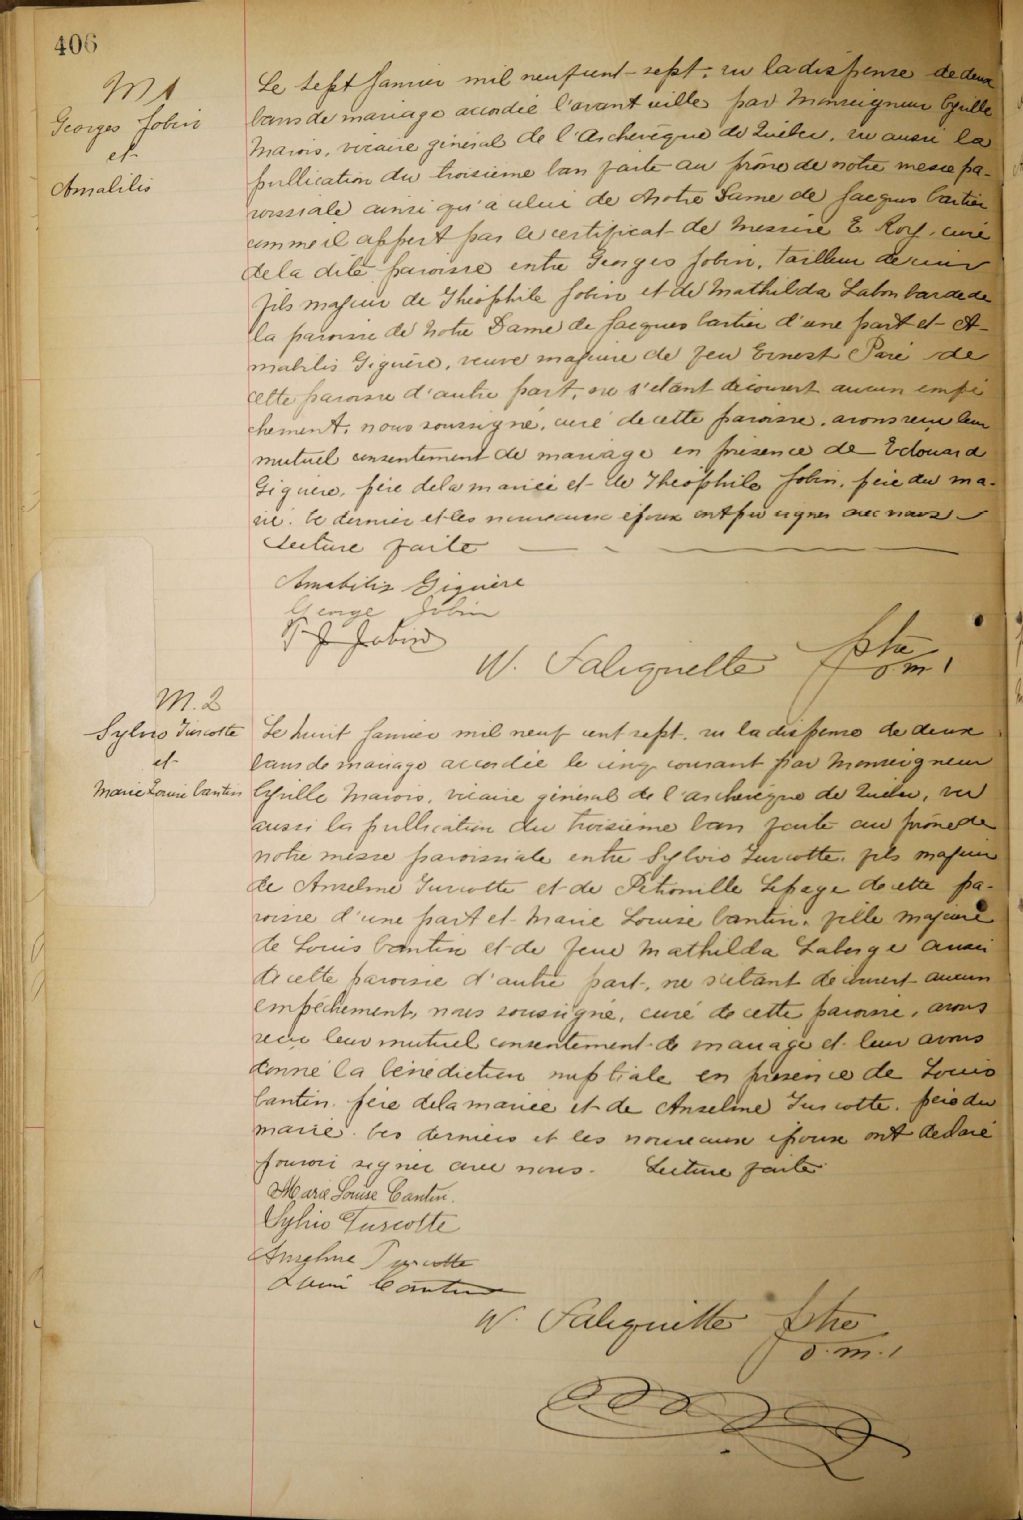 406
M 1
Georges Jobin
et
Amabilis
Le sept janvier mil neuf cent-sept, vu la dispense de deux
bans de mariage accordée l'avant veille par Monseigneur Cyrille
Marois, vicaire général de l'Archevêque de Québec, vu aussi la
publication du troisième ban faite au prône de notre messe pa-
roissiale ainsi qu'à celui de Notre Dame de Jacques Cartier
comme il appert par le certificat de Messire E. Roy, curé
de la dite paroisse entre Georges Jobin, tailleur de cuir
fils majeur de Théophile Jobin et de Mathilda Labombarde de
la paroisse de Notre Dame de Jacques Cartier d'une part et A-
mabilis Giguère, veuve majeure de feu Ernest Paré de
cette paroisse d'autre part, ne s'étant découvert aucun empê
chement, nous soussigné, curé de cette paroisse, avons reçu leur
mutuel consentement de mariage en présence de Edouard
Giguère, père de la mariée et de Théophile Jobin, père du ma-
rié. Ce dernier et les nouveaux époux ont pu signer avec nous
Lecture faite
Amabilis Giguère
George Jobin
T J Jobin
W. Valiquette ptre
o.m.i
M. 2
Sylvio Turcotte
et
Marie Louise Cantin
Le huit janvier mil neuf cent sept, vu la dispense de deux
bans de mariage accordée le cinq courant par Monseigneur
Cyrille Marois, vicaire général de l'archevêque de Québec, vu
aussi la publication du troisième ban faite au prône de
notre messe paroissiale entre Sylvio Turcotte, fils majeur
de Anselme Turcotte et de Pétronille Lepage de cette pa-
roisse d'une part et Marie Louise Cantin, fille majeure
de Louis Cantin et de feue Mathilda Laberge aussi
de cette paroisse d'autre part, ne s'étant découvert aucun
empêchement, nous soussigné, curé de cette paroisse, avons
reçu leur mutuel consentement de mariage et leur avons
donné la bénédiction nuptiale en présence de Louis
Cantin, père de la mariée et de Anselme Turcotte, père du
marié. Ces derniers et les nouveaux époux ont déclaré
pouvoir signer avec nous. Lecture faite
Marie Louise Cantin.
Sylvio Turcotte
Anselme Turcotte
Louis Cantin
W. Valiquette ptre
o.m.i